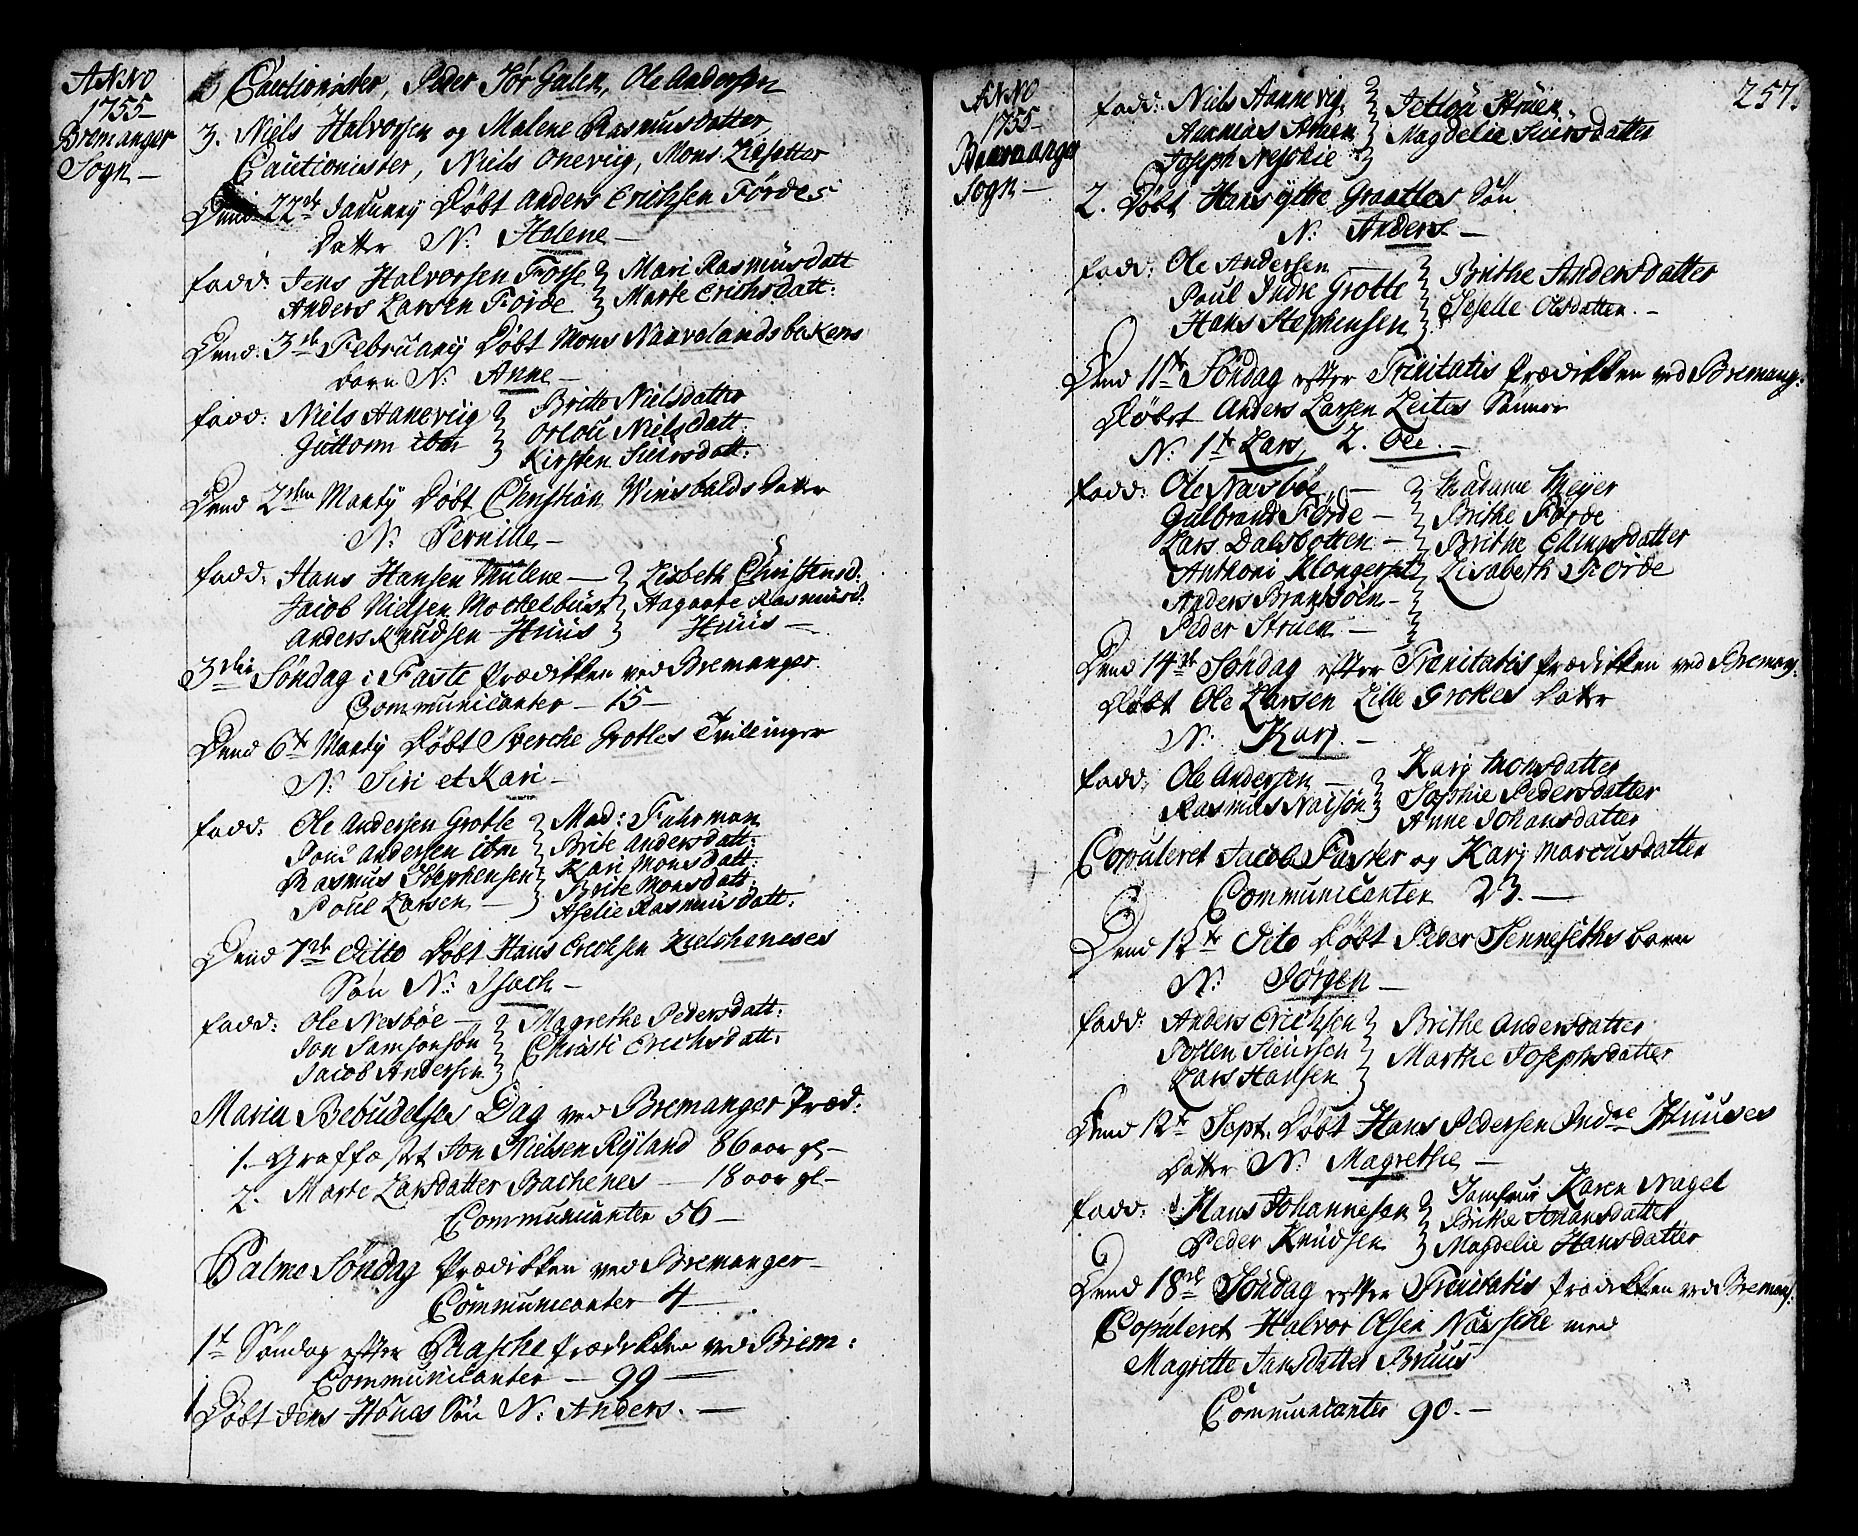 ANNO
1755
Bremanger
Sogn
Cautionister, Peder Sør Galen, Ole Andersen
3. Niels Halvorsen og Malene Rasmusdatter
Cautionister, Niels Oneviig, Mons Liesetter
Dend 22de January Døbt Anders Erichsen Førdes
Datter N: Helene
fadd: Jens Halvorsen Fosse Mari Rasmusdatt
Anders Larsen Förde Marte Erichsdatt:
Dend 3de February Døbt Mons Naavelandsbakens
barn N: Anne
fadd: Niels Haneviig Britte Nielsdatter
Guttorm ibm Orlou Nielsdatt:
Kirsten Siursdatt:
Dend 2den Martij Døbt Christian Winsbalds Datter
N: Pernille
fadd: Hans Hansen Thulene Lisbeth Christensd:
Jacob Nielsen Mockelbust Aagaate Rasmusd:
Anders Knudsen Huus Huus
3die Søndag i Faste Prædikken ved Bremanger
Communicanter 15
Dend 6te Martij Døbt Sverche Grotles Tvilinger
N: Siri et Kari
fadd: Ole Andersen Grotle Mad: Fuhrman
Poul Andersen ibm Brite Andersdatt:
Rasmus Stephensen Kari Monsdatt:
Poul Larsen Brite Monsdatt:
Aselie Rasmusdatt:
Dend 7de Ditto Døbt Hans Erichsen Kielcheneses
Søn N: Isach
fadd: Ole Nesbøe Magrethe Pedersdatt:
Jon Samsonsøn Christi Erichsdatt:
Jacob Andersen
Mariæ Bebudelses Dag ved Bremanger Præd:
1. Graffæstet Jon Nielsen Ryland 86 aar gl
2. Marte Larsdatter Bachenes 18 aar gl
Communicanter 56
Palme Søndag Prædikken ved Bremanger
Communicanter 4
1te Søndag efter Paasche Prædikken ved Brem:
Communicanter 99
1 Døbt Jens Hones Søn N: Anders.
ANNO
1755
Bremanger
Sogn
257.
fadd: Niels Hannevig Jetlou Struen
Annanias Struen Magdelie Siursdatter
Joseph
2. Døbt Hans Ytre Graatles Søn
N: Anders
fadd: Ole Andersen Brithe Andersdatter
Paul Indre Grotte Seselle Olsdatter
Hans Stephensen
Dend 11te Søndag efter Trinitatis Prædikken ved Bremang:
Døbt Anders Larsen Leites Sønner
N: 1te Lars, 2. Ole.
fadd: Ole Næsbøe Madame Meyer
Gulbrand Förde Brithe Förde
Lars Dalsbotten Brithe Ellingsdatter
Anthoni Lisabeth Förde
Anders
Peder Struen
Dend 14de Søndag efter Trinitatis Prædikken ved Bremang:
Døbt Ole Larsen Lille Grotles Datter
N: Karj
fadd: Ole Andersen Karj Monsdatter
Rasmus Sophie Pedersdatter
Anne Johansdatter
Copuleret Jacob Faster og Karj Marcusdatter
Communicanter 23.
Dend 12te Dito Døbt Peder Senneseths barn
N: Jørgen
fadd: Anders Erichsen Brithe Andersdatter
Siursen Marthe Josephsdatter
Lars Hansen
Dend 12te Sept. Døbt Hans Pedersen Indre Huuses
Datter N: Magrethe
fadd: Hans Johannesen Jomfrue Karen Nagel
Peder Knudsen Brithe Johansdatter
Magdelie Hansdatter
Dend 18de Søndag efter Trinitatis Prædikken ved Bremang:
Copuleret Halvor Olsen med
Magrette Jansdatter Bruus
Communicanter 90.